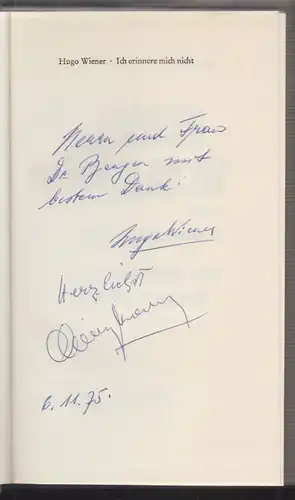 Hugo Wiener · Ich erinnere mich nicht
Herrn und Frau
Dr. mit
bestem Dank!
Hugo Wiener
Herzlichst
6.11.75.